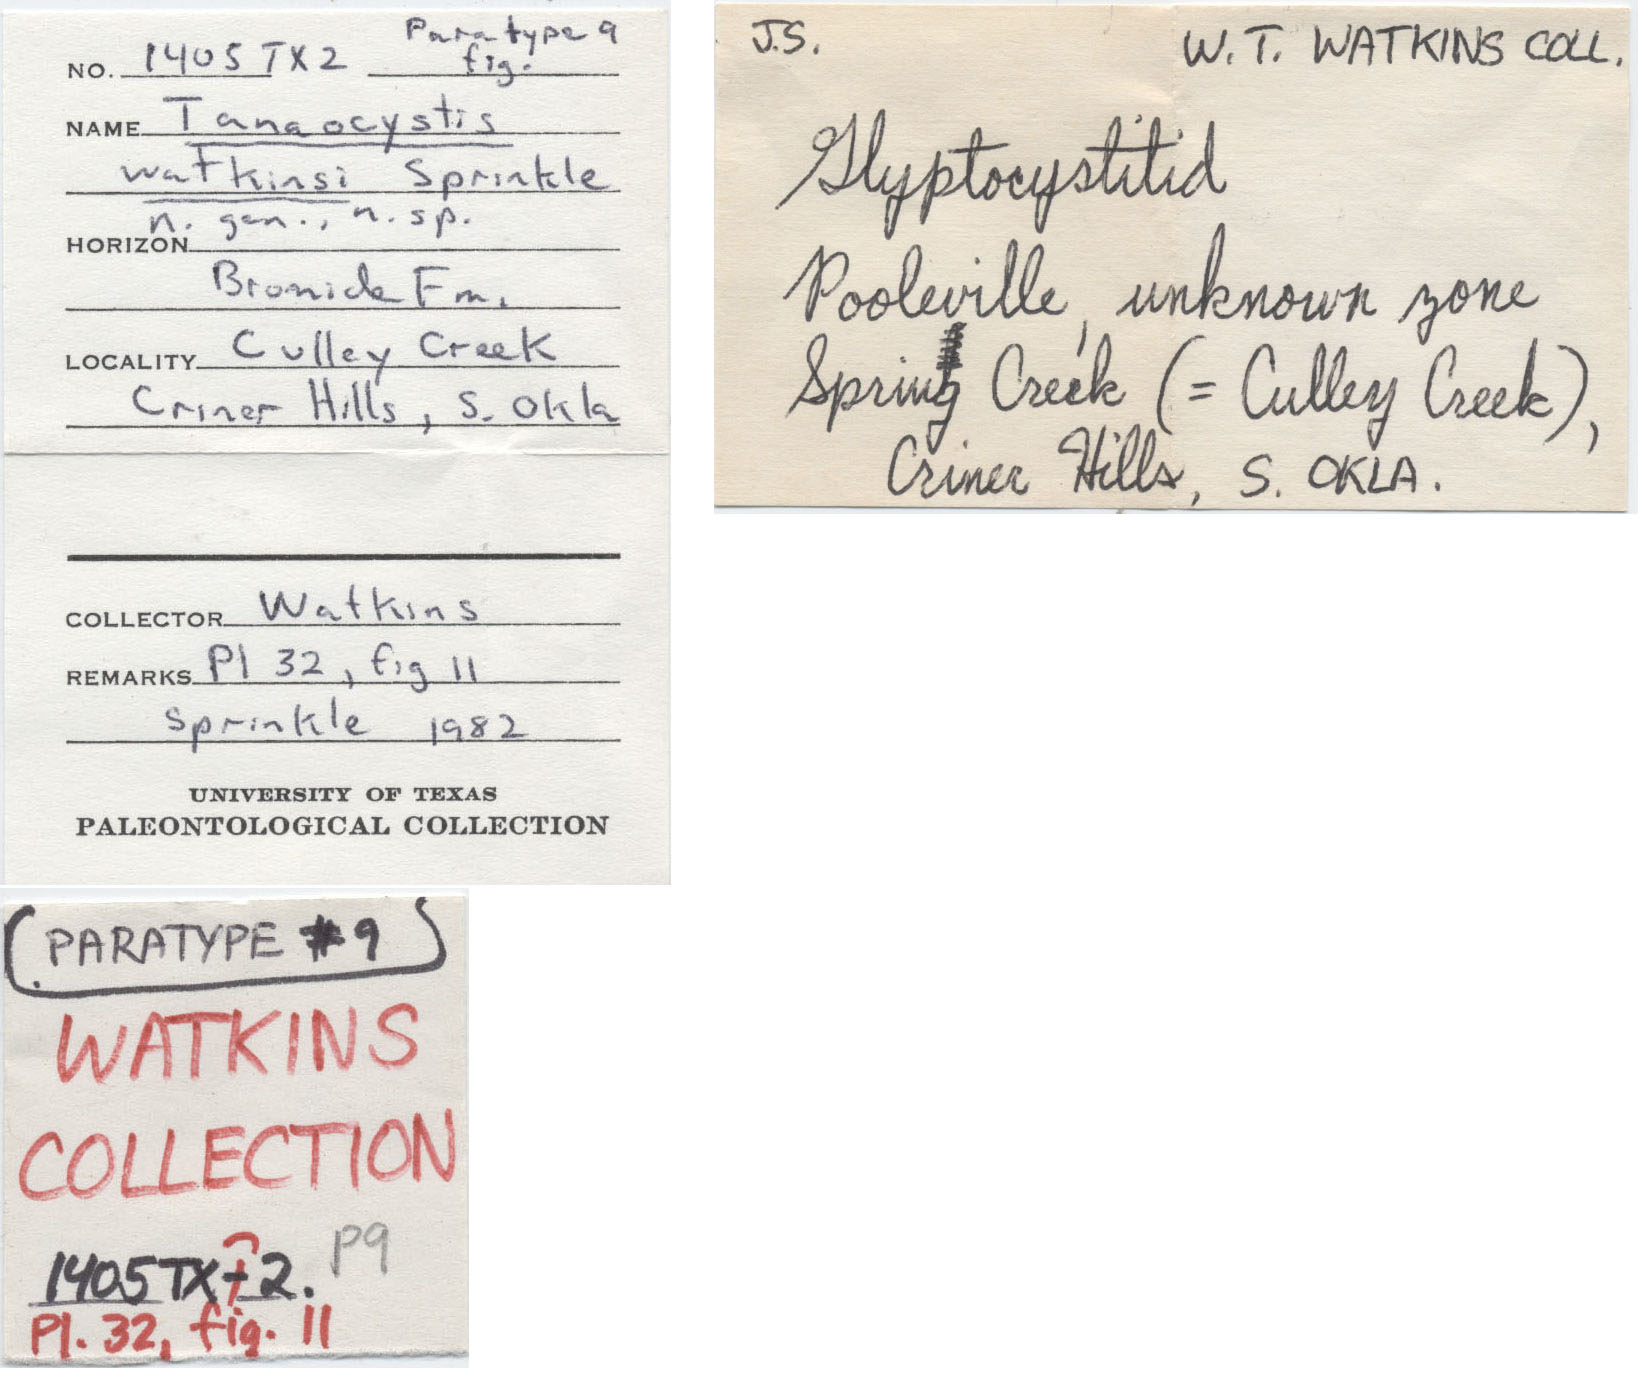 Paratype 9
NO. 1405 TX 2 fig.
NAME Tanaocystis
watkinsi Sprinkle
n. gen., n. sp.
HORIZON
Bromide Fm.
LOCALITY Culley Creek
Criner Hills, S. Okla
COLLECTOR Watkins
REMARKS Pl 32, fig 11
Sprinkle 1982
UNIVERSITY OF TEXAS
PALEONTOLOGICAL COLLECTION
J.S. W. T. WATKINS COLL.
Glyptocystitid
Pooleville, unknown zone
Spring Creek (= Culley Creek),
Criner Hills, S. OKLA.
PARATYPE #9
WATKINS
COLLECTION
1405TX-2. P9
Pl. 32, fig. 11